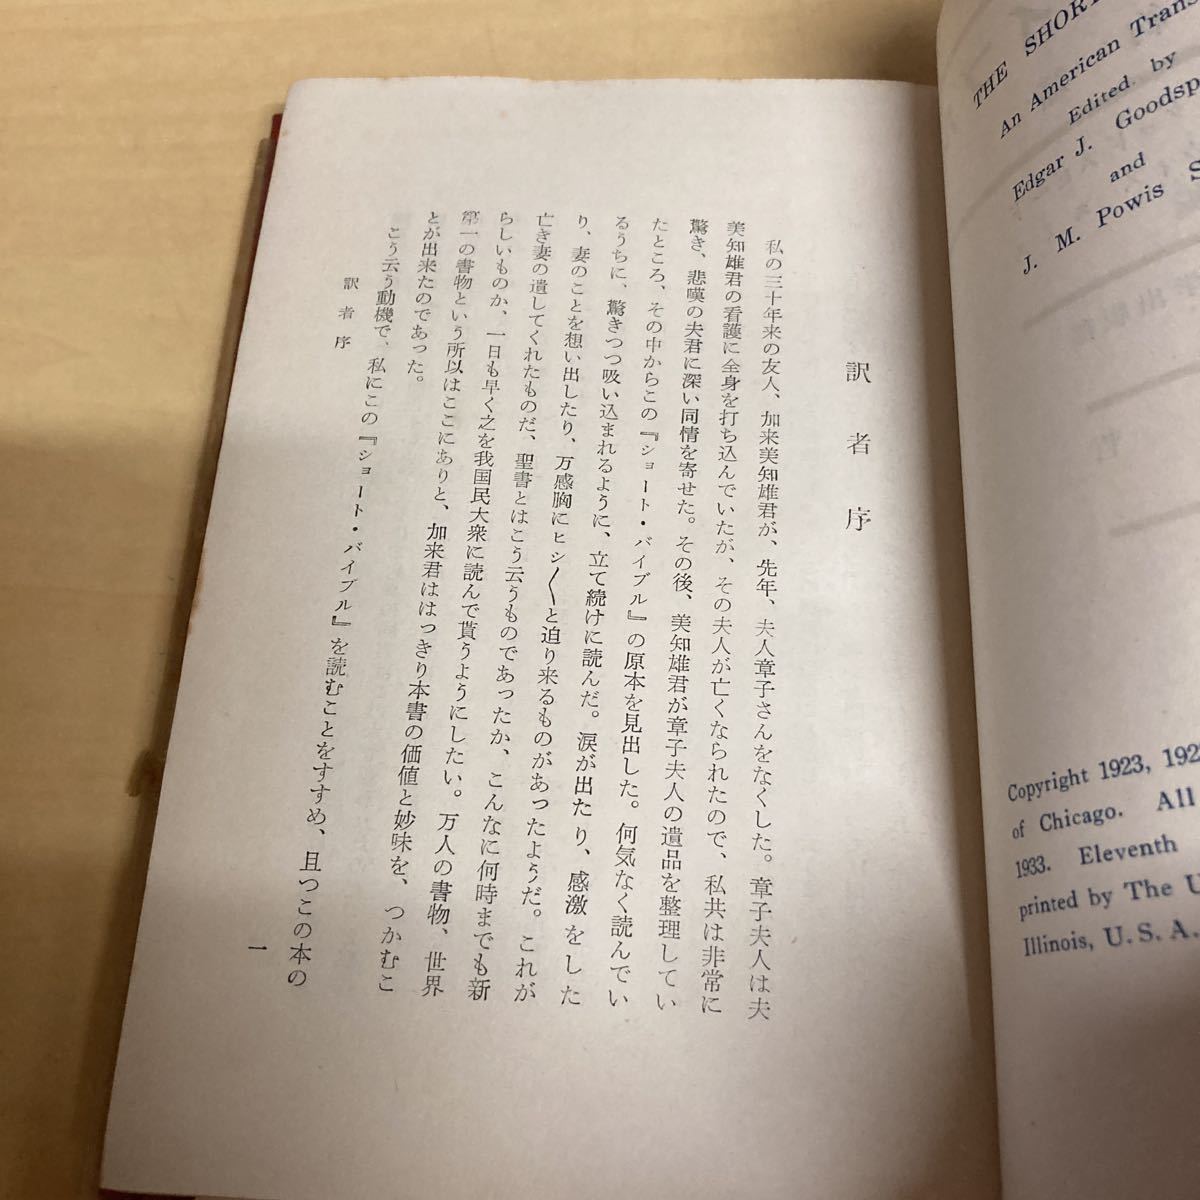 訳者序
私の三十年来の友人、加来美知雄君が、先年、夫人章子さんをなくした。章子夫人は夫
美知雄君の看護に全身を打ち込んでいたが、その夫人が亡くなられたので、私共は非常に
驚き、悲嘆の夫君に深い同情を寄せた。その後、美知雄君が章子夫人の遺品を整理してい
たところ、その中からこの『ショート・バイブル』の原本を見出した。何気なく読んでい
るうちに、驚きつつ吸い込まれるように、立て続けに読んだ。涙が出たり、感激をした
り、妻のことを想い出したり、万感胸にヒシ〱と迫り来るものがあったようだ。これが
亡き妻の遺してくれたものだ、聖書とはこう云うものであったか、こんなに何時までも新
らしいものか、一日も早く之を我国民大衆に読んで貰うようにしたい。万人の書物、世界
第一の書物という所以はここにありと、加来君ははっきり本書の価値と妙味を、つかむこ
とが出来たのであった。
こう云う動機で、私にこの『ショート・バイブル』を読むことをすすめ、且つこの本の
訳者序
一
THE SHORT
An American Trans
Edited by
Edgar J. Goodsp
and
J. M. Powis S
Copyright 1923, 192
of Chicago. All
1933. Eleventh
printed by The U
Illinois, U. S. A.